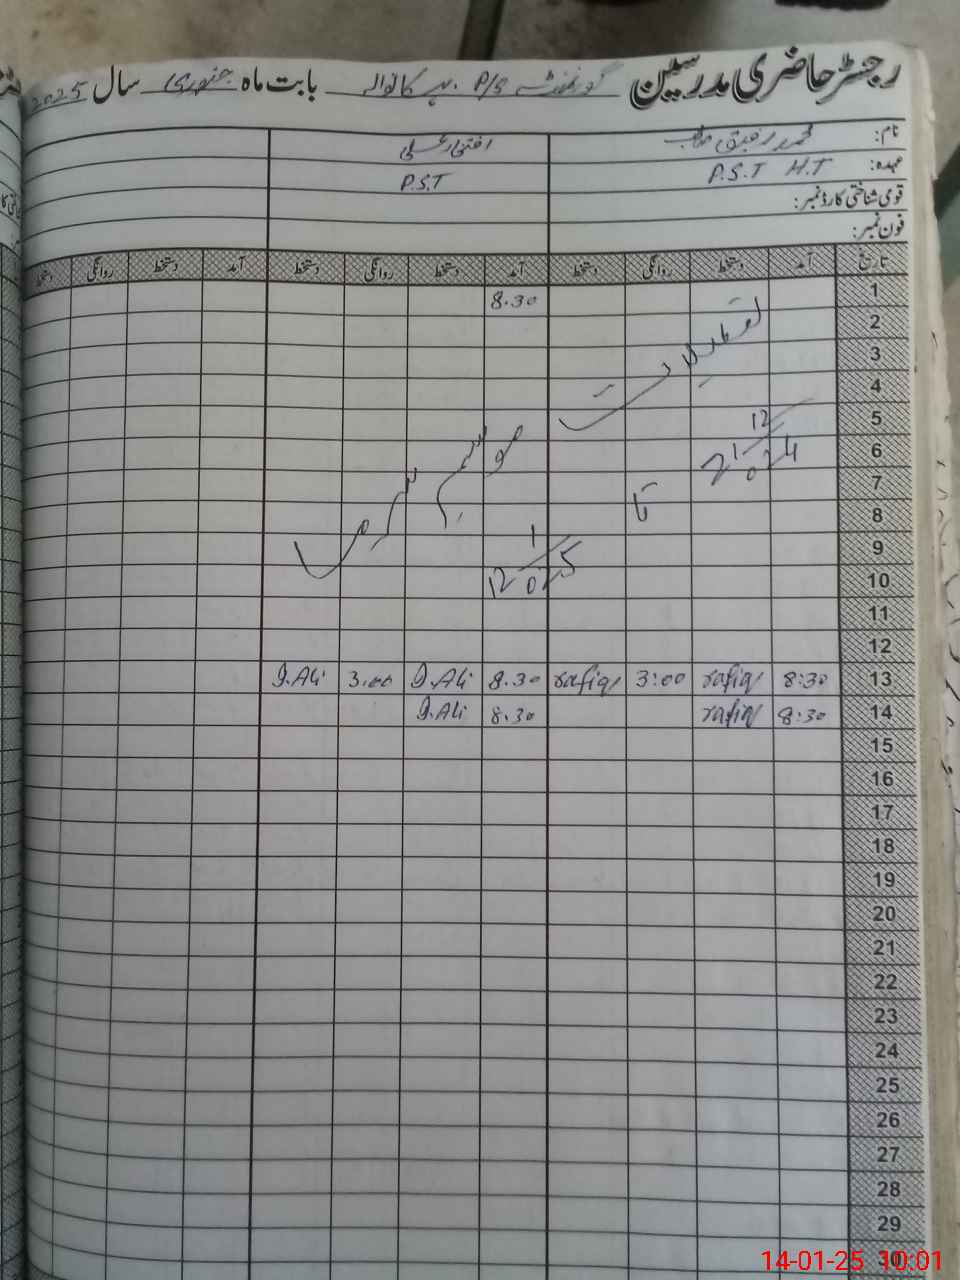 رجسٹر حاضری مدرسین گورنمنٹ P/S بابت ماہ جنوری سال 2025
نام: محمد رفیق صاحب افتخار علی
عہدہ: P.S.T H.T P.S.T
قومی شناختی کارڈ نمبر:
فون نمبر:
تاریخ آمد دستخط روانگی دستخط آمد دستخط روانگی دستخط آمد دستخط روانگی دستخط
1 8.30
2
3
4
5
6
7
8
9
10
11
12
تعطیلات موسم سرما
21/12 2024 تا 12/1 2025
13 8:30 rafiq 3:00 rafiq 8.30 I.Ali 3.00 I.Ali
14 8:30 rafiq 8.30 I.Ali
15
16
17
18
19
20
21
22
23
24
25
26
27
28
29
30
14-01-25 10:01